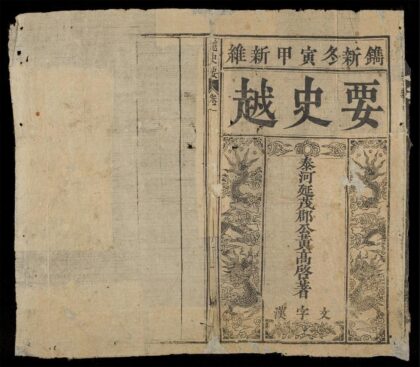 維新甲寅冬新鐫
越史要
泰河延茂郡公黃高啓著
漢字文
越史要
卷一